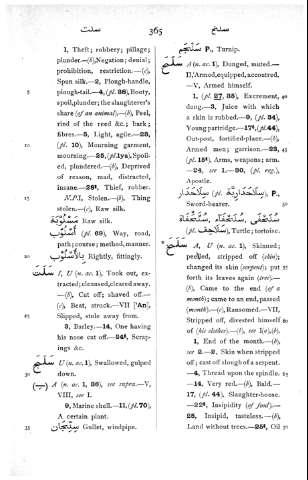 سلت 365 سلخ
1, Theft; robbery; pillage;
plunder.—(b), Negation; denial;
prohibition, restriction.—(c),
Spun silk.—2, Plough-handle,
plough-tail.—4, (pl. 38), Booty,
spoil, plunder; the slaughterer's
share (of an animal);—(b), Peel,
rind of the reed &c.; bark;
fibres.—5, Light, agile.—23,
(pl. 10), Mourning garment,
mourning.—25, (pl. 1ya), Spoil-
ed, plundered.—(b), Deprived
of reason, mad, distracted,
insane.—28ª, Thief, robber.
N.P.I, Stolen.—(b), Thing
stolen.—(c), Raw silk.
Raw silk.
أُسْلُوب (pl. 69), Way, road,
path; course; method, manner.
بِالأُسْلُوب Rightly, fittingly.
سلت I, U (n. ac. 1), Took out, ex-
tracted; cleansed, cleared away.
—(b), Cut off; shaved off.—
(c), Beat, struck.—VII ['An],
Slipped, stole away from.
3, Barley.—14, One having
his nose cut off.—24ª, Scrap-
ings &c.
سلج U (n. ac. 1), Swallowed, gulped
down.
A (n. ac. 1, 36), see supra.—V,
VIII, see I.
9, Marine shell.—11, (pl. 70),
A certain plant.
Gullet, windpipe.
سَلْجَم P., Turnip.
سلح A (n. ac. 1), Dunged, muted.—
II, Armed, equipped, accoutred.
—V, Armed himself.
1, (pl. 27, 38), Excrement,
dung.—3, Juice with which
a skin is rubbed.—9, (pl. 34),
Young partridge.—17ª, (pl. 44),
Out-post, fortified-place.—(b),
Armed men; garrison.—23,
(pl. 15ª), Arms, weapons; arm.
—24, see 1.—30, (pl. reg.),
Apostle.
سِلاحدار (pl. سلاحدارية), P.,
Sword-bearer.
(pl. سلاحف), Turtle; tortoise.
سلخ A, U (n. ac. 1), Skinned;
peeled, stripped off (skin);
changed its skin (serpent); put
forth its leaves again (tree)—
(b), Came to the end (of a
month); came to an end, passed
(month).—(c), Ransomed.—VII,
Stripped off, divested himself
of (his clothes).—(b), see I(a), (b).
1, End of the month.—(b),
see 2.—2, Skin when stripped
off; cast off slough of a serpent.
—4, Thread upon the spindle.
—14, Very red.—(b), Bald.—
17, (pl. 44), Slaughter-house.
—22ª, Insipidity (of food).—
25, Insipid, tasteless.—(b),
Land without trees.—25ª, Oil